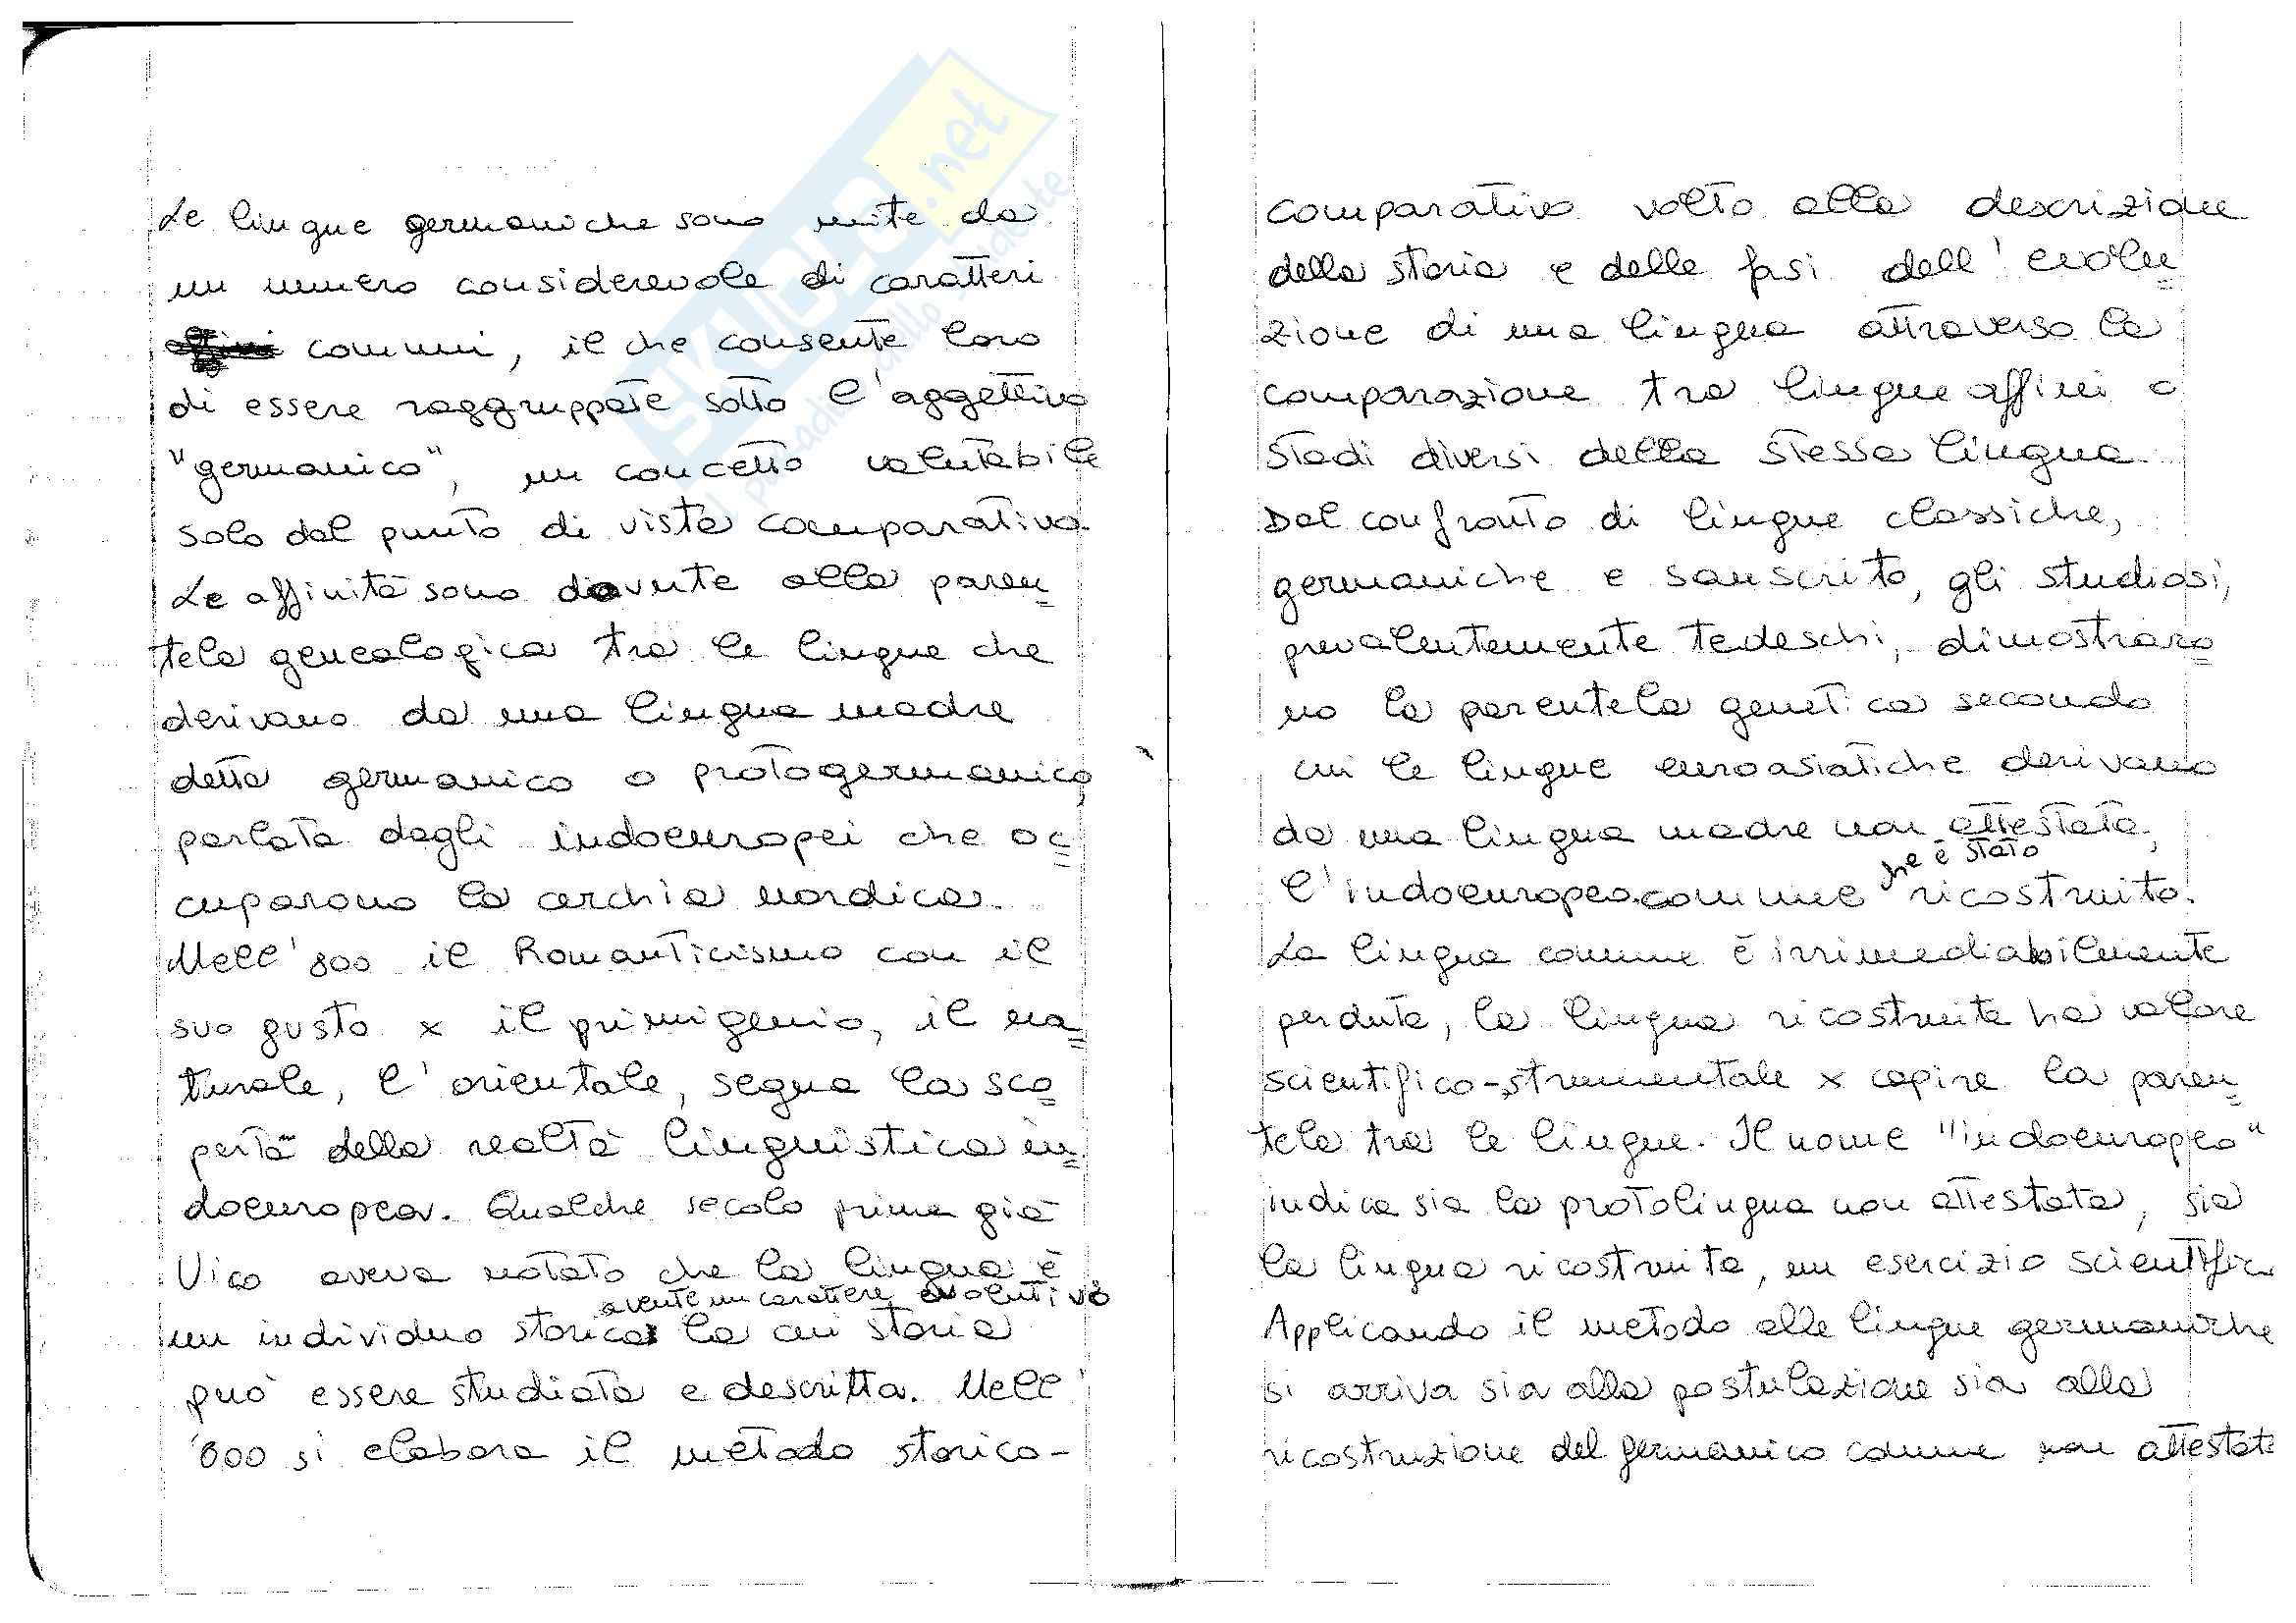 Le lingue germaniche sono unite da
un numero considerevole di caratteri
comuni, il che consente loro
di essere raggruppate sotto l'aggettivo
"germanico", un concetto valutabile
solo dal punto di vista comparativo.
Le affinità sono dovute alla paren=
tela genealogica tra le lingue che
derivano da una lingua madre
detta germanico o protogermanico,
parlata dagli indoeuropei che oc=
cuparono la cerchia nordica.
Nell'800 il Romanticismo con il
suo gusto x il primigenio, il na=
turale, l'orientale, segna la sco=
perta della realtà linguistica in=
doeuropea. Qualche secolo prima già
Vico aveva notato che la lingua è
avente un carattere evolutivo
un individuo storico la cui storia
può essere studiata e descritta. Nell'
'800 si elabora il metodo storico-
comparativo volto alla descrizione
della storia e delle fasi dell'evolu=
zione di una lingua attraverso la
comparazione tra lingue affini o
stadi diversi della stessa lingua.
Dal confronto di lingue classiche,
germaniche e sanscrito, gli studiosi,
prevalentemente tedeschi, dimostraro=
no la parentela genetica secondo
cui le lingue euroasiatiche derivano
da una lingua madre non attestata,
che è stato
l'indoeuropeo comune ricostruito.
La lingua comune è irrimediabilmente
perduta, la lingua ricostruita ha valore
scientifico-strumentale x capire la paren=
tela tra le lingue. Il nome "indoeuropeo"
indica sia la protolingua non attestata, sia
la lingua ricostruita, un esercizio scientific
Applicando il metodo alle lingue germaniche
si arriva sia alla postulazione sia alla
ricostruzione del germanico comune non attestat
SKUOLA.net